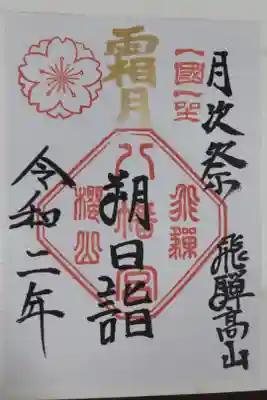 一國一社
月次祭
飛騨高山
霜月
八幡宮
飛騨
櫻山
朔日詣
令和二年